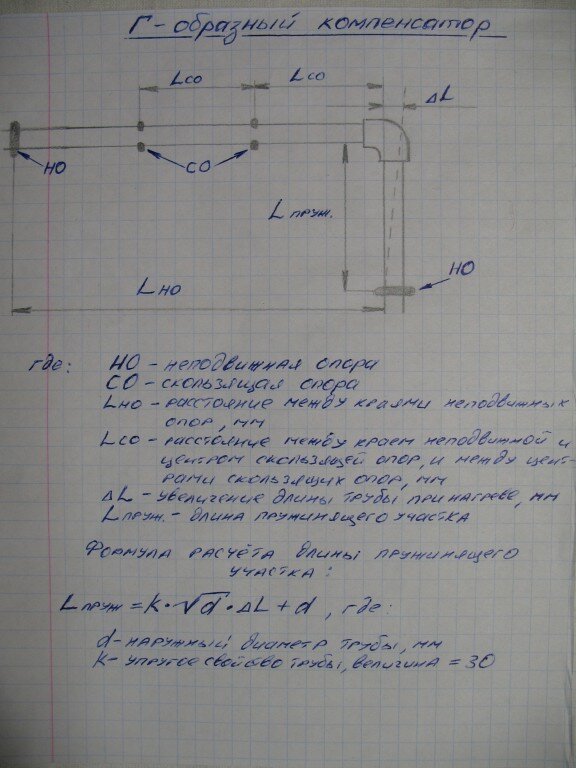 Г-образный компенсатор
Lсо Lсо
ΔL
НО СО
Lпруж.
НО
Lно
где: НО - неподвижная опора
СО - скользящая опора
Lно - расстояние между краями неподвижных
опор, мм
Lсо - расстояние между краем неподвижной и
центром скользящей опор, и между цент-
рами скользящих опор, мм
ΔL - увеличение длины трубы при нагреве, мм
Lпруж. - длина пружинящего участка
Формула расчёта длины пружинящего
участка:
Lпруж = k·√d·ΔL + d, где:
d - наружный диаметр трубы, мм
k - упругое свойство трубы, величина = 30